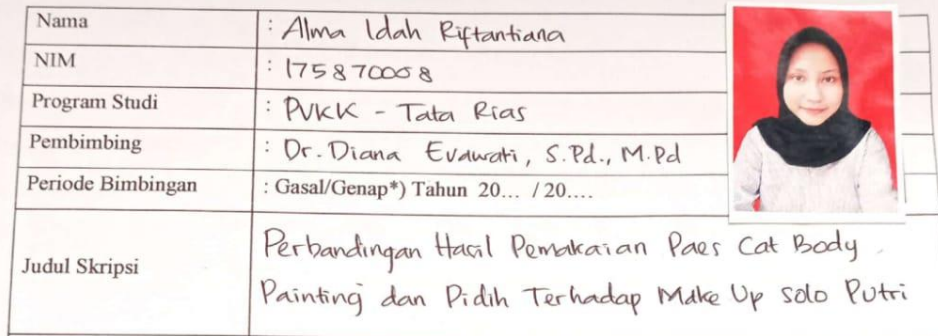 Nama : Alma Idah Riftantiana
NIM : 175870058
Program Studi : PVKK - Tata Rias
Pembimbing : Dr. Diana Evawati, S.Pd., M.Pd
Periode Bimbingan : Gasal/Genap*) Tahun 20... / 20....
Judul Skripsi : Perbandingan Hasil Pemakaian Paes Cat Body
Painting dan Pidih Terhadap Make Up Solo Putri